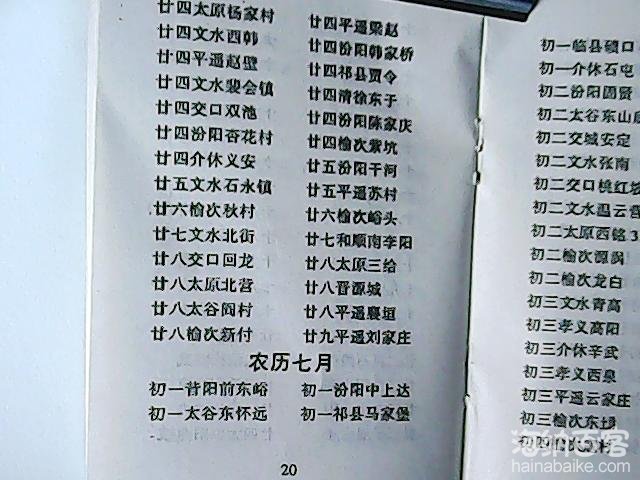 廿四太原杨家村
廿四文水西韩
廿四平遥赵壁
廿四文水裴会镇
廿四交口双池
廿四汾阳杏花村
廿四介休义安
廿五文水石永镇
廿六榆次秋村
廿七文水北街
廿八交口回龙
廿八太原北营
廿八太谷阎村
廿八榆次新付
廿四平遥梁赵
廿四汾阳韩家桥
廿四祁县贾令
廿四清徐东于
廿四汾阳陈家庄
廿四榆次紫坑
廿五汾阳干河
廿五平遥苏村
廿六榆次峪头
廿七和顺南李阳
廿八太原三给
廿八晋源城
廿八平遥襄垣
廿九平遥刘家庄
农历七月
初一昔阳前东峪
初一太谷东怀远
初一汾阳中上达
初一祁县马家堡
20
初一临县碛口
初一介休石屯
初二汾阳固贤
初二太谷东山
初二交城安定
初二文水张南
初二交口桃红
初二文水温云
初二太原西铭3
初二榆次源涡
初二榆次龙白
初三文水青高
初三孝义高阳
初三介休辛武
初三孝义西泉
初三平遥云家庄
初三榆次东
初四榆次
海纳百客
hainabaike.com